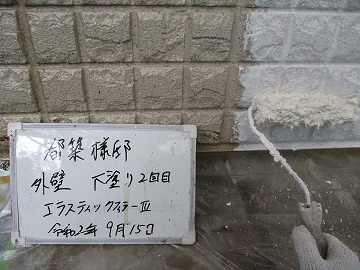 都築様邸
外壁 下塗り2回目
エラスティックフィラーⅢ
令和2年 9月15日